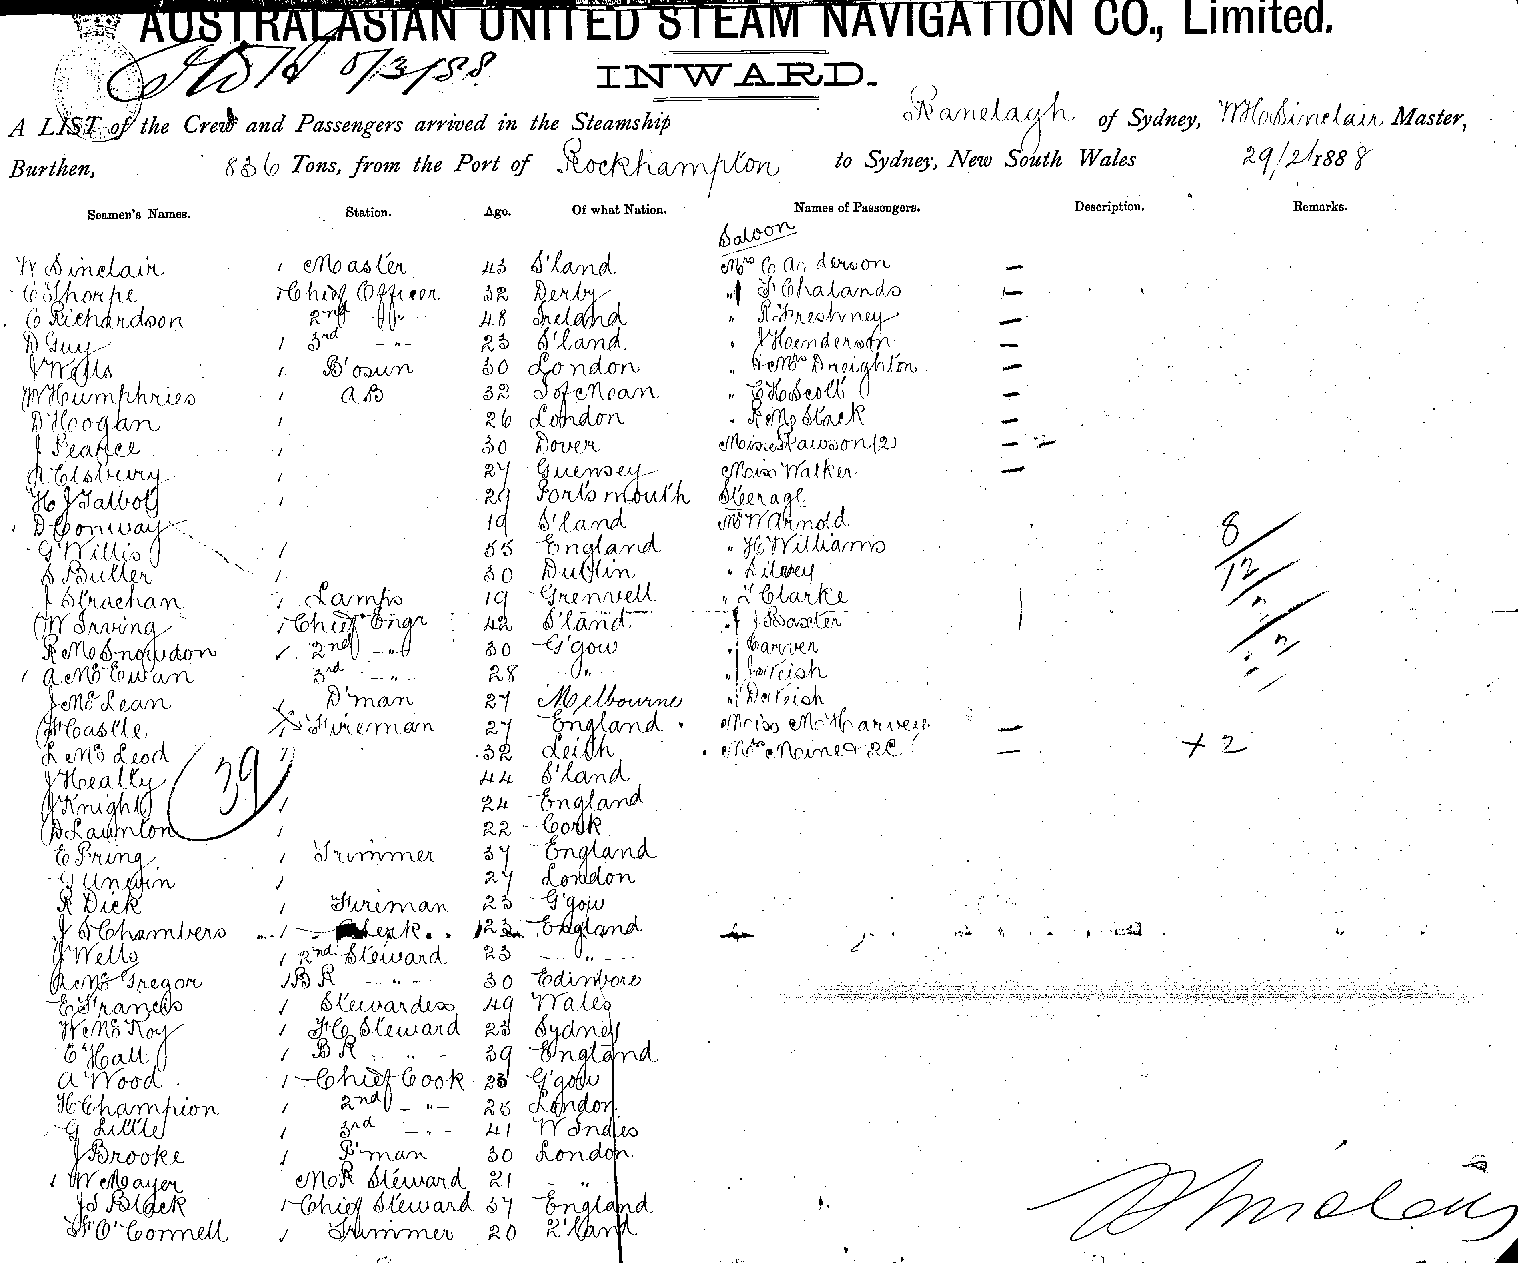 AUSTRALASIAN UNITED STEAM NAVIGATION CO., Limited.
5/3/88
INWARD.
A LIST of the Crew and Passengers arrived in the Steamship Ranelagh of Sydney, W H Sinclair Master,
Burthen, 836 Tons, from the Port of Rockhampton to Sydney, New South Wales 29/2/1888
Seamen's Names. Station. Age. Of what Nation. Names of Passengers. Description. Remarks.
Saloon
W Sinclair Master 43 S'land Mrs C Anderson —
C Thorpe Chief Officer 32 Derby " F Chalands —
C Richardson 2nd " 48 Ireland " R Freshney —
D Guy 3rd -"- 23 S'land " J Henderson —
J Wells B'osun 30 London " & Mrs Dreighton —
W Humphries AB 32 I of Mean " C H Scott —
D Hogan 26 London " R Mc Slack —
J Pearce 30 Dover Misses Lawson (2) — 2
A Elsbury 27 Guensey Miss Walker —
H J Talbot 29 Portsmouth Sterage
D Conway 19 S'land Mr W Arnold
G Willis 55 England " H Williams
S Butler 30 Dublin "
J Strachan Lamps 19 Grenvell " T Clarke
W Irving Chief Engr 42 S'land " J Baxter
R McSnowdon 2nd -"- 30 G'gow " Carver
A McEwan 3rd -"- 28 " "
J McLean D'man 27 Melbourne "
F Castle Fireman 27 England Miss McHarvey —
L McLeod 32 Leith Mrs Miner & 2C — + 2
J Healty 44 S'land
J Knight 24 England
D Launton 22 Cork
39
8
12
E Pring Trimmer 37 England
G Unwin 27 London
R Dick Fireman 23 G'gow
J S Chambers Clerk 23 England
J Wells 2nd Steward 23 "
R McGregor BR -"- 30 Edinboro
E Francis Stewardess 49 Wales
W McKoy FC Steward 23 Sydney
E Hall BR " 39 England
A Wood Chief Cook 23 G'gow
H Champion 2nd -"- 25 London
G Little 3rd -"- 41 W Indies
J Brooke P'man 30 London
W Mayer MR Steward 21 "
J S Black Chief Steward 37 England
F O'Connell Trimmer 20 Z'land